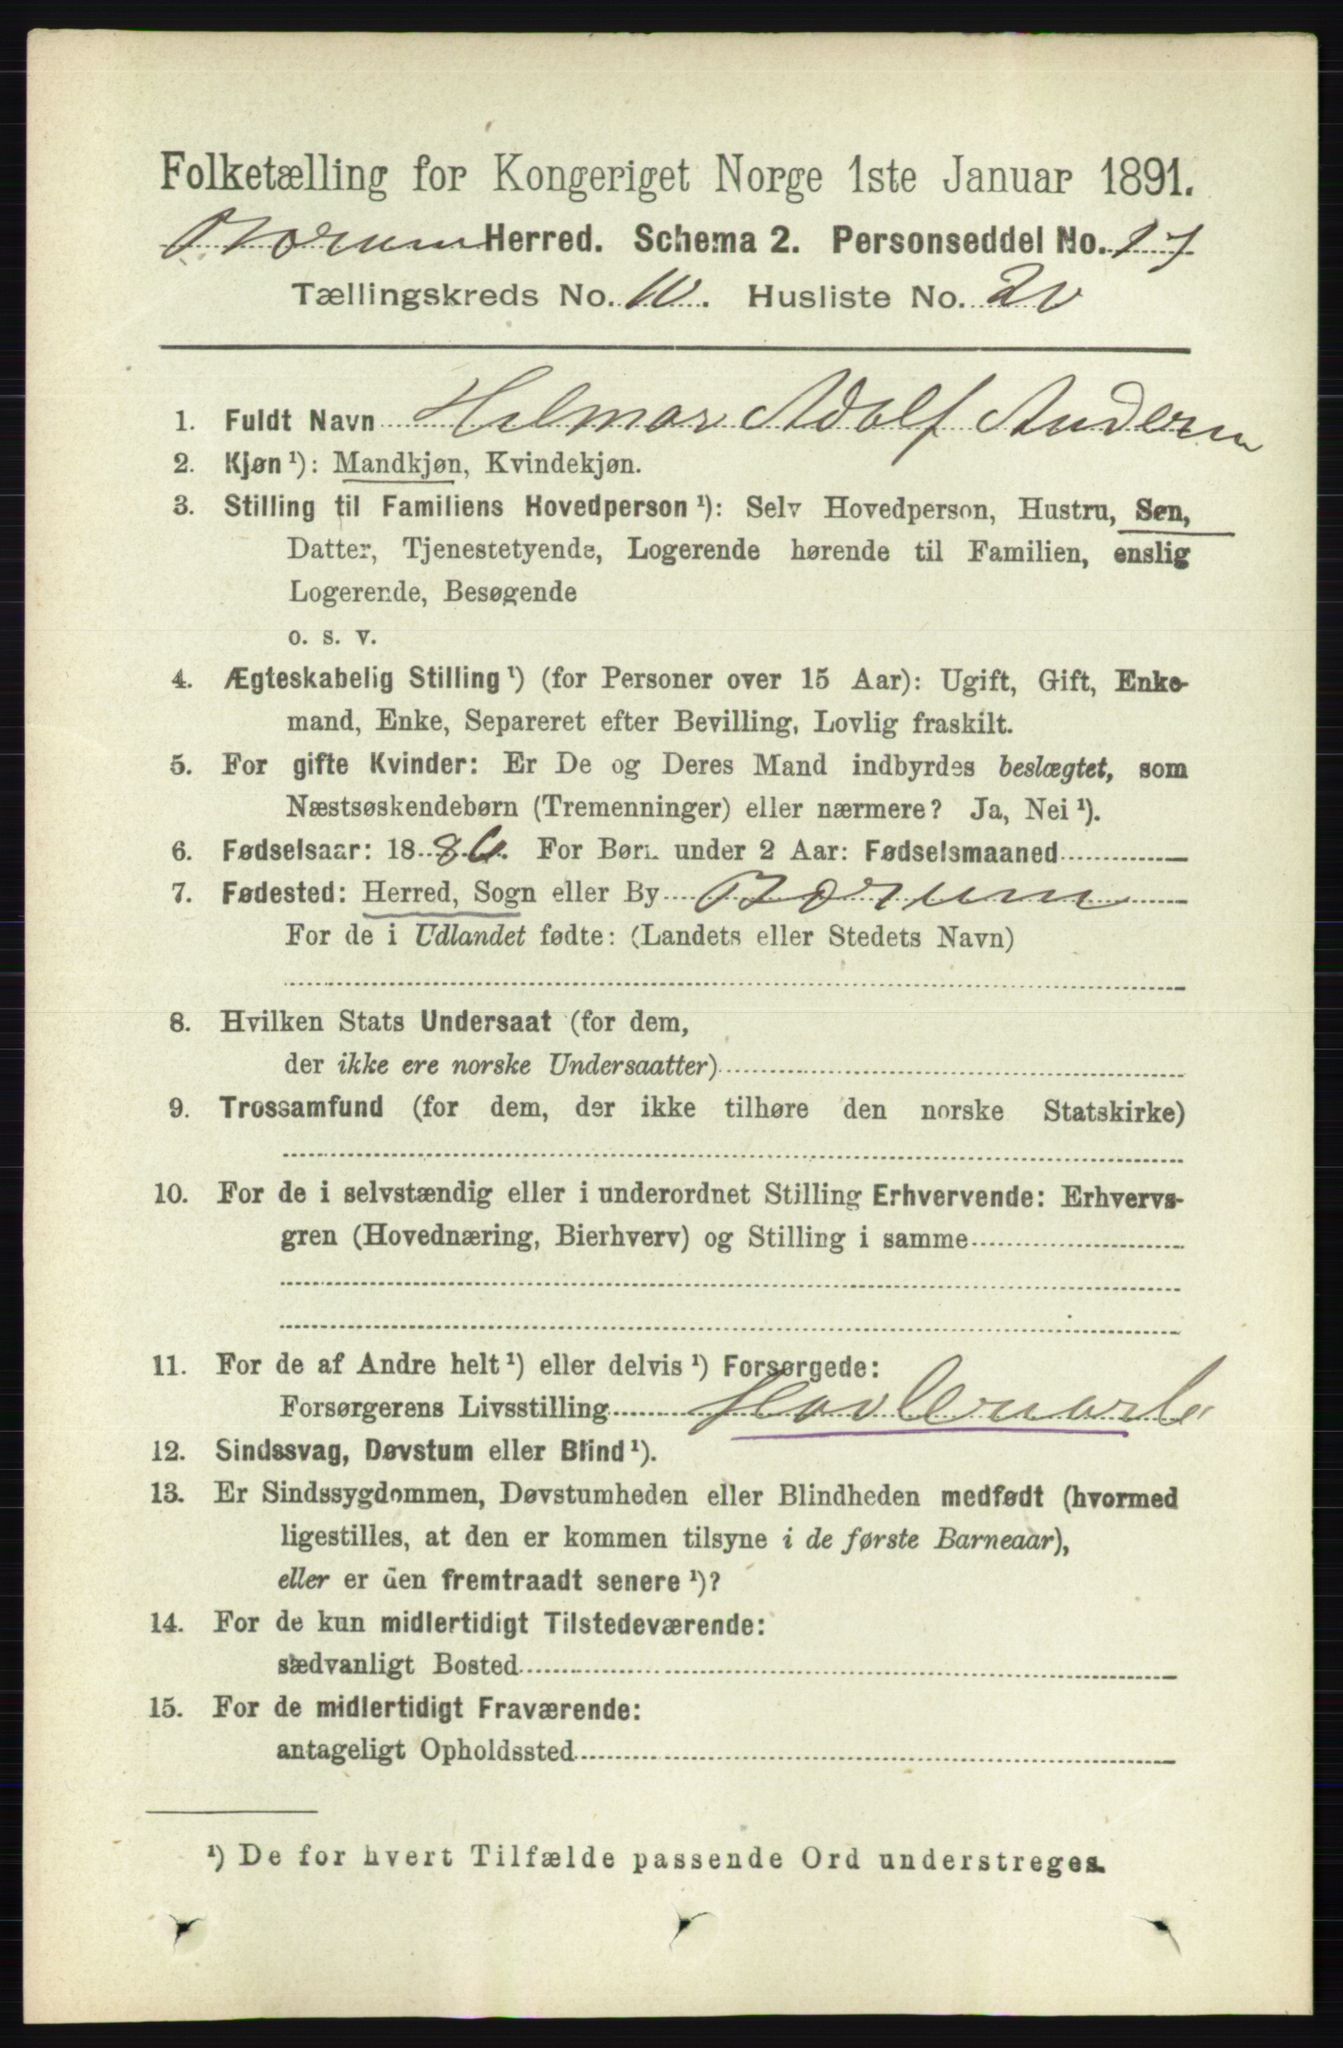 Folketælling for Kongeriget Norge 1ste Januar 1891.
Borum Herred. Schema 2. Personseddel No. 17
Tællingskreds No. 10. Husliste No. 20
1. Fuldt Navn Hilmar Adolf Andersen
2. Kjøn ¹): Mandkjøn, Kvindekjøn.
3. Stilling til Familiens Hovedperson ¹): Selv Hovedperson, Hustru, Søn,
Datter, Tjenestetyende, Logerende hørende til Familien, enslig
Logerende, Besøgende
o. s. v.
4. Ægteskabelig Stilling ¹) (for Personer over 15 Aar): Ugift, Gift, Enke-
mand, Enke, Separeret efter Bevilling, Lovlig fraskilt.
5. For gifte Kvinder: Er De og Deres Mand indbyrdes beslægtet, som
Næstsøskendebørn (Tremenninger) eller nærmere? Ja, Nei ¹).
6. Fødselsaar: 1886. For Børn under 2 Aar: Fødselsmaaned
7. Fødested: Herred, Sogn eller By Borum
For de i Udlandet fødte: (Landets eller Stedets Navn)
8. Hvilken Stats Undersaat (for dem,
der ikke ere norske Undersaatter)
9. Trossamfund (for dem, der ikke tilhøre den norske Statskirke)
10. For de i selvstændig eller i underordnet Stilling Erhvervende: Erhvervs-
gren (Hovednæring, Bierhverv) og Stilling i samme
11. For de af Andre helt ¹) eller delvis ¹) Forsørgede:
Forsørgerens Livsstilling
12. Sindssvag, Døvstum eller Blind ¹).
13. Er Sindssygdommen, Døvstumheden eller Blindheden medfødt (hvormed
ligestilles, at den er kommen tilsyne i de første Barneaar),
eller er den fremtraadt senere ¹)?
14. For de kun midlertidigt Tilstedeværende:
sædvanligt Bosted
15. For de midlertidigt Fraværende:
antageligt Opholdssted
¹) De for hvert Tilfælde passende Ord understreges.